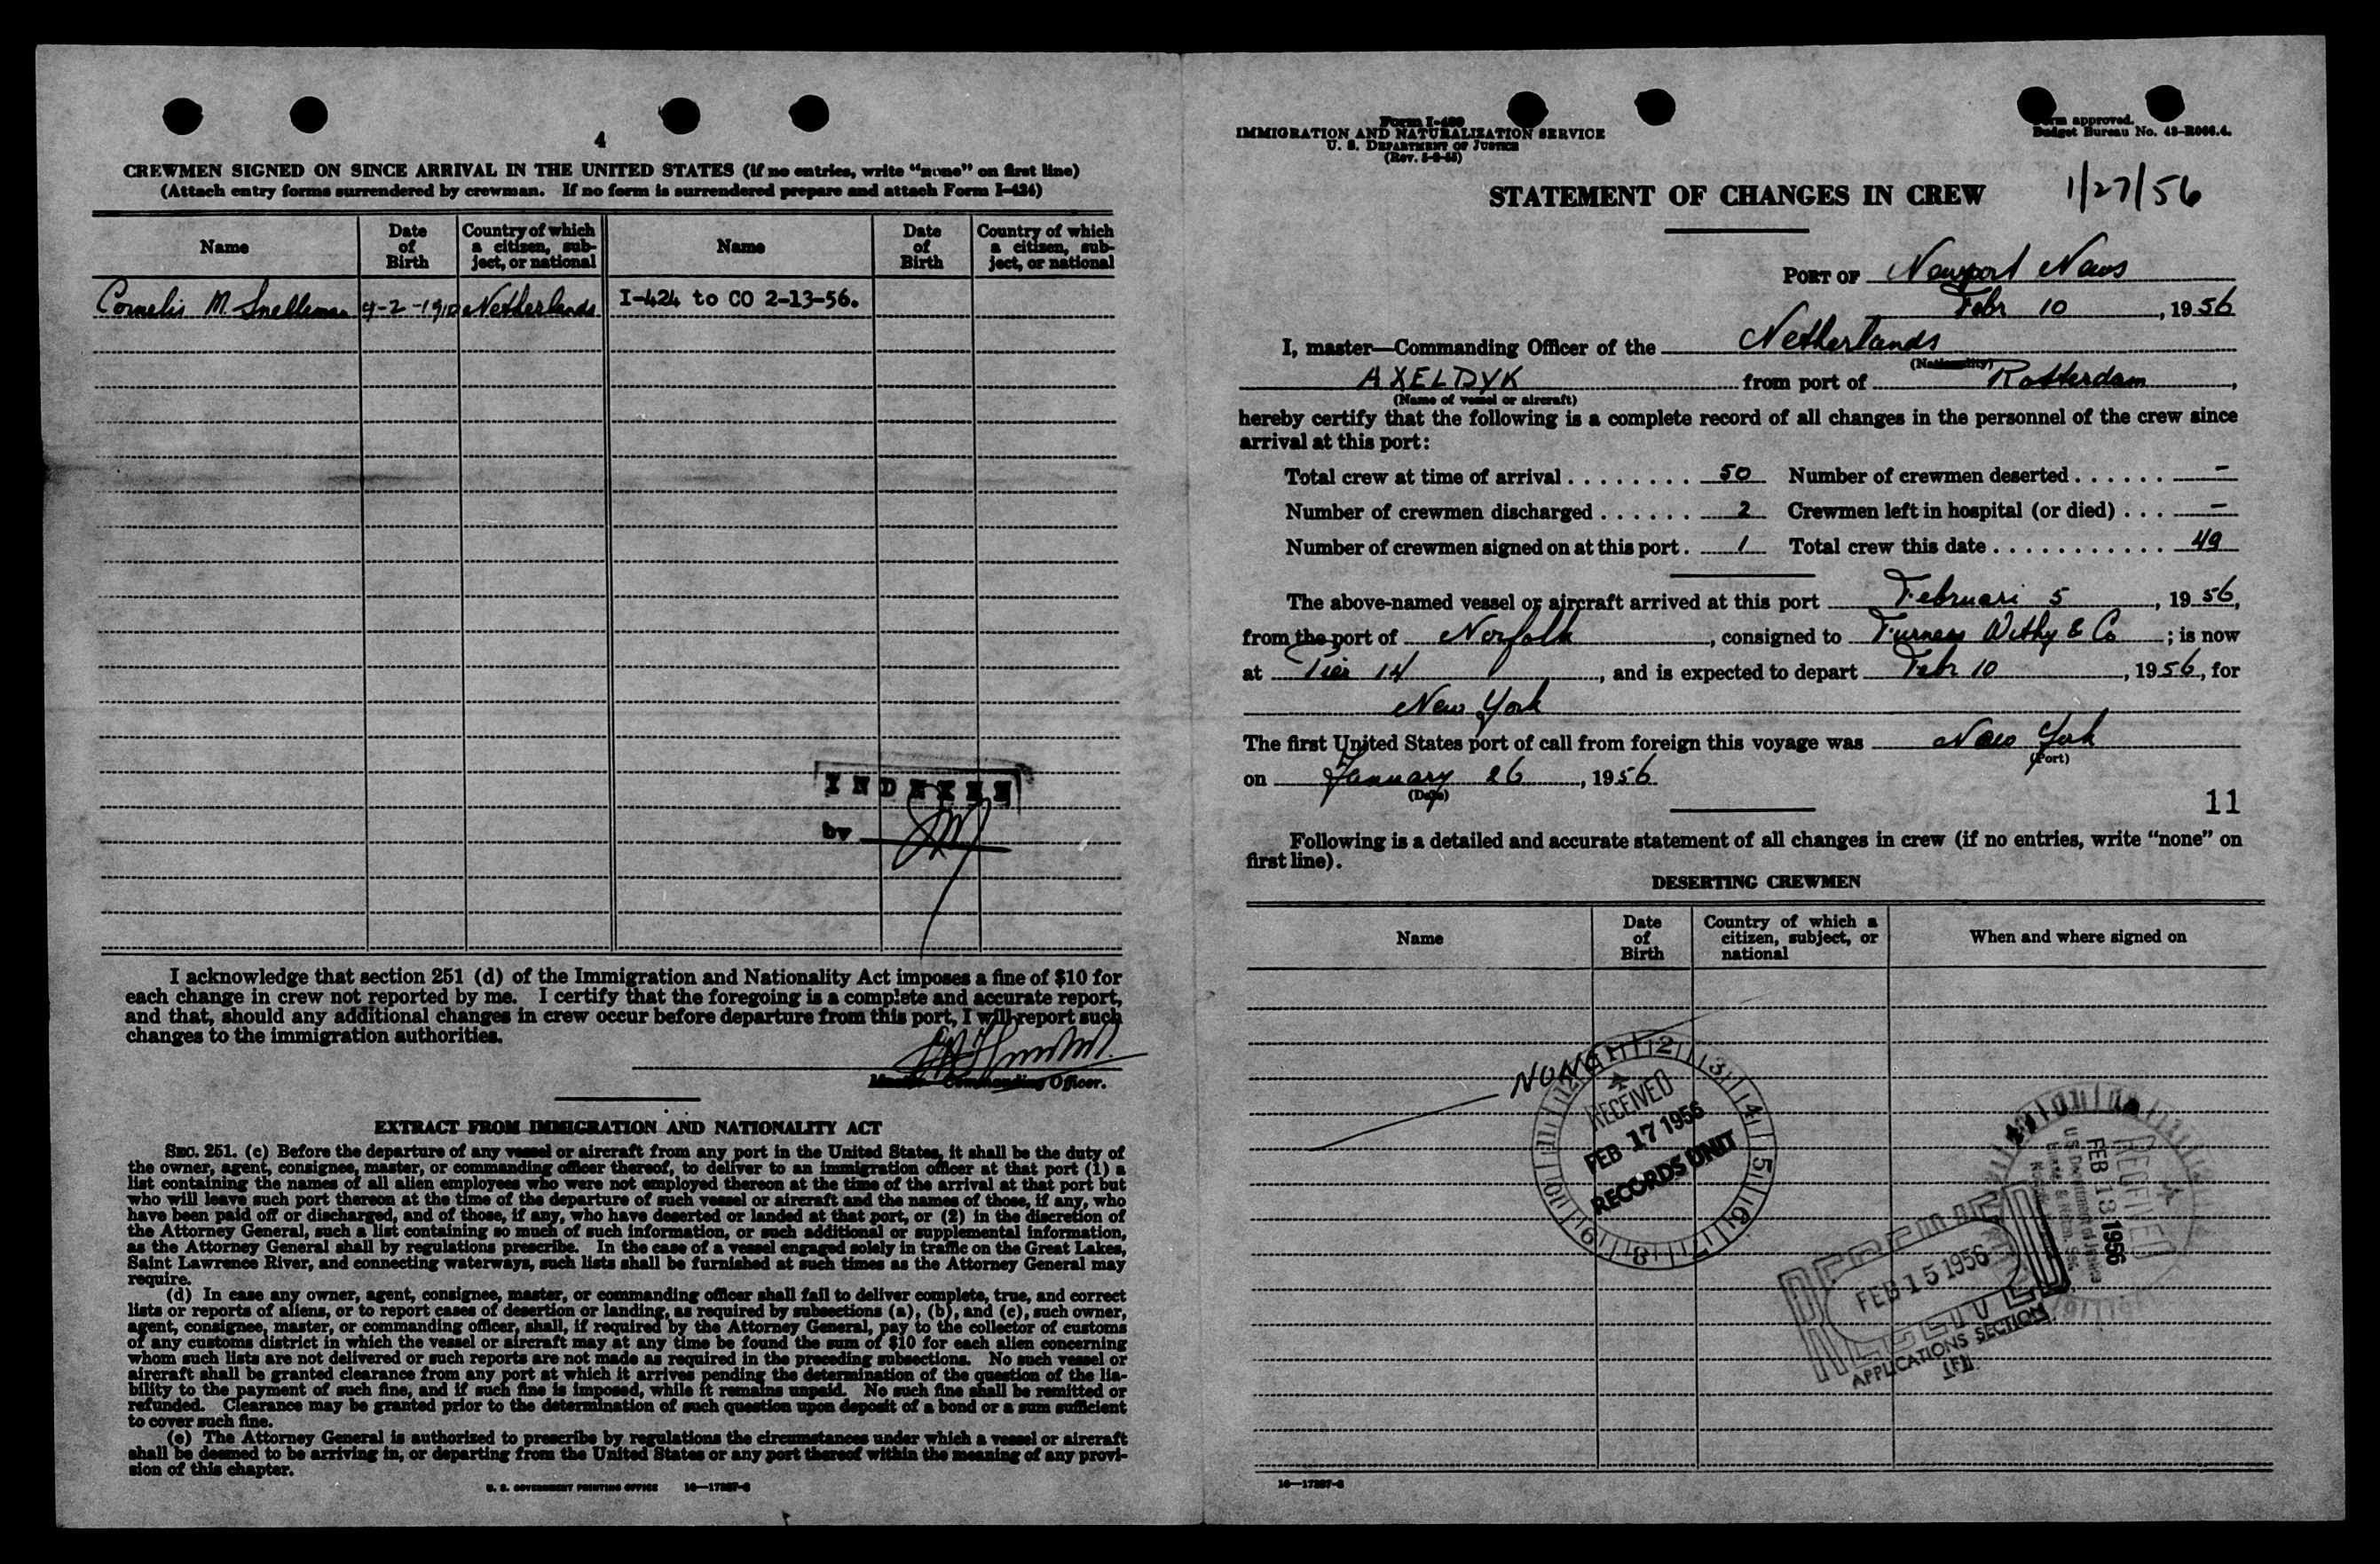 4
CREWMEN SIGNED ON SINCE ARRIVAL IN THE UNITED STATES (If no entries, write “none” on first line)
(Attach entry forms surrendered by crewman. If no form is surrendered prepare and attach Form I-424)
Name Date of Birth Country of which a citizen, subject, or national Name Date of Birth Country of which a citizen, subject, or national
Cornelis M. Snelleman 4-2-1910 Netherlands I-424 to CO 2-13-56.
INDEXED
by
I acknowledge that section 251 (d) of the Immigration and Nationality Act imposes a fine of $10 for
each change in crew not reported by me. I certify that the foregoing is a complete and accurate report,
and that, should any additional changes in crew occur before departure from this port, I will report such
changes to the immigration authorities.
Master—Commanding Officer.
EXTRACT FROM IMMIGRATION AND NATIONALITY ACT
SEC. 251. (c) Before the departure of any vessel or aircraft from any port in the United States, it shall be the duty of
the owner, agent, consignee, master, or commanding officer thereof, to deliver to an immigration officer at that port (1) a
list containing the names of all alien employees who were not employed thereon at the time of the arrival at that port but
who will leave such port thereon at the time of the departure of such vessel or aircraft and the names of those, if any, who
have been paid off or discharged, and of those, if any, who have deserted or landed at that port, or (2) in the discretion of
the Attorney General, such a list containing so much of such information, or such additional or supplemental information,
as the Attorney General shall by regulations prescribe. In the case of a vessel engaged solely in traffic on the Great Lakes,
Saint Lawrence River, and connecting waterways, such lists shall be furnished at such times as the Attorney General may
require.
(d) In case any owner, agent, consignee, master, or commanding officer shall fail to deliver complete, true, and correct
lists or reports of aliens, or to report cases of desertion or landing, as required by subsections (a), (b), and (c), such owner,
agent, consignee, master, or commanding officer, shall, if required by the Attorney General, pay to the collector of customs
of any customs district in which the vessel or aircraft may at any time be found the sum of $10 for each alien concerning
whom such lists are not delivered or such reports are not made as required in the preceding subsections. No such vessel or
aircraft shall be granted clearance from any port at which it arrives pending the determination of the question of the lia-
bility to the payment of such fine, and if such fine is imposed, while it remains unpaid. No such fine shall be remitted or
refunded. Clearance may be granted prior to the determination of such question upon deposit of a bond or a sum sufficient
to cover such fine.
(e) The Attorney General is authorized to prescribe by regulations the circumstances under which a vessel or aircraft
shall be deemed to be arriving in, or departing from the United States or any port thereof within the meaning of any provi-
sion of this chapter.
U. S. GOVERNMENT PRINTING OFFICE
Form
IMMIGRATION AND NATURALIZATION SERVICE
U. S. DEPARTMENT OF JUSTICE
approved.
Budget Bureau No. 43-R066.4.
1/27/56
STATEMENT OF CHANGES IN CREW
PORT OF Newport News
Febr 10, 1956
I, master—Commanding Officer of the Netherlands
(Nationality)
AXELDYK from port of Rotterdam,
(Name of vessel or aircraft)
hereby certify that the following is a complete record of all changes in the personnel of the crew since
arrival at this port:
Total crew at time of arrival........ 50 Number of crewmen deserted...... –
Number of crewmen discharged...... 2 Crewmen left in hospital (or died)... –
Number of crewmen signed on at this port. 1 Total crew this date........... 49
The above-named vessel or aircraft arrived at this port Februari 5, 1956,
from the port of Norfolk, consigned to Furness Withy & Co; is now
at Pier 14, and is expected to depart Febr 10, 1956, for
New York
The first United States port of call from foreign this voyage was New York
(Port)
on January 26, 1956
(Date)
11
Following is a detailed and accurate statement of all changes in crew (if no entries, write “none” on
first line).
DESERTING CREWMEN
Name Date of Birth Country of which a citizen, subject, or national When and where signed on
NONE
RECEIVED
FEB 17 1956
RECORDS UNIT
RECEIVED
FEB 13 1956
US Department of Justice
FEB 15 1956
APPLICATIONS SECTION